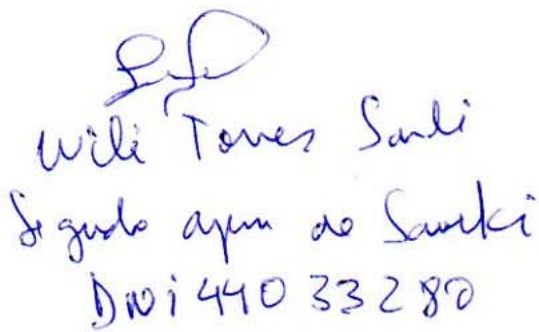 Wili Torres Sanli
Segundo apu de Sawki
DNI 44033280